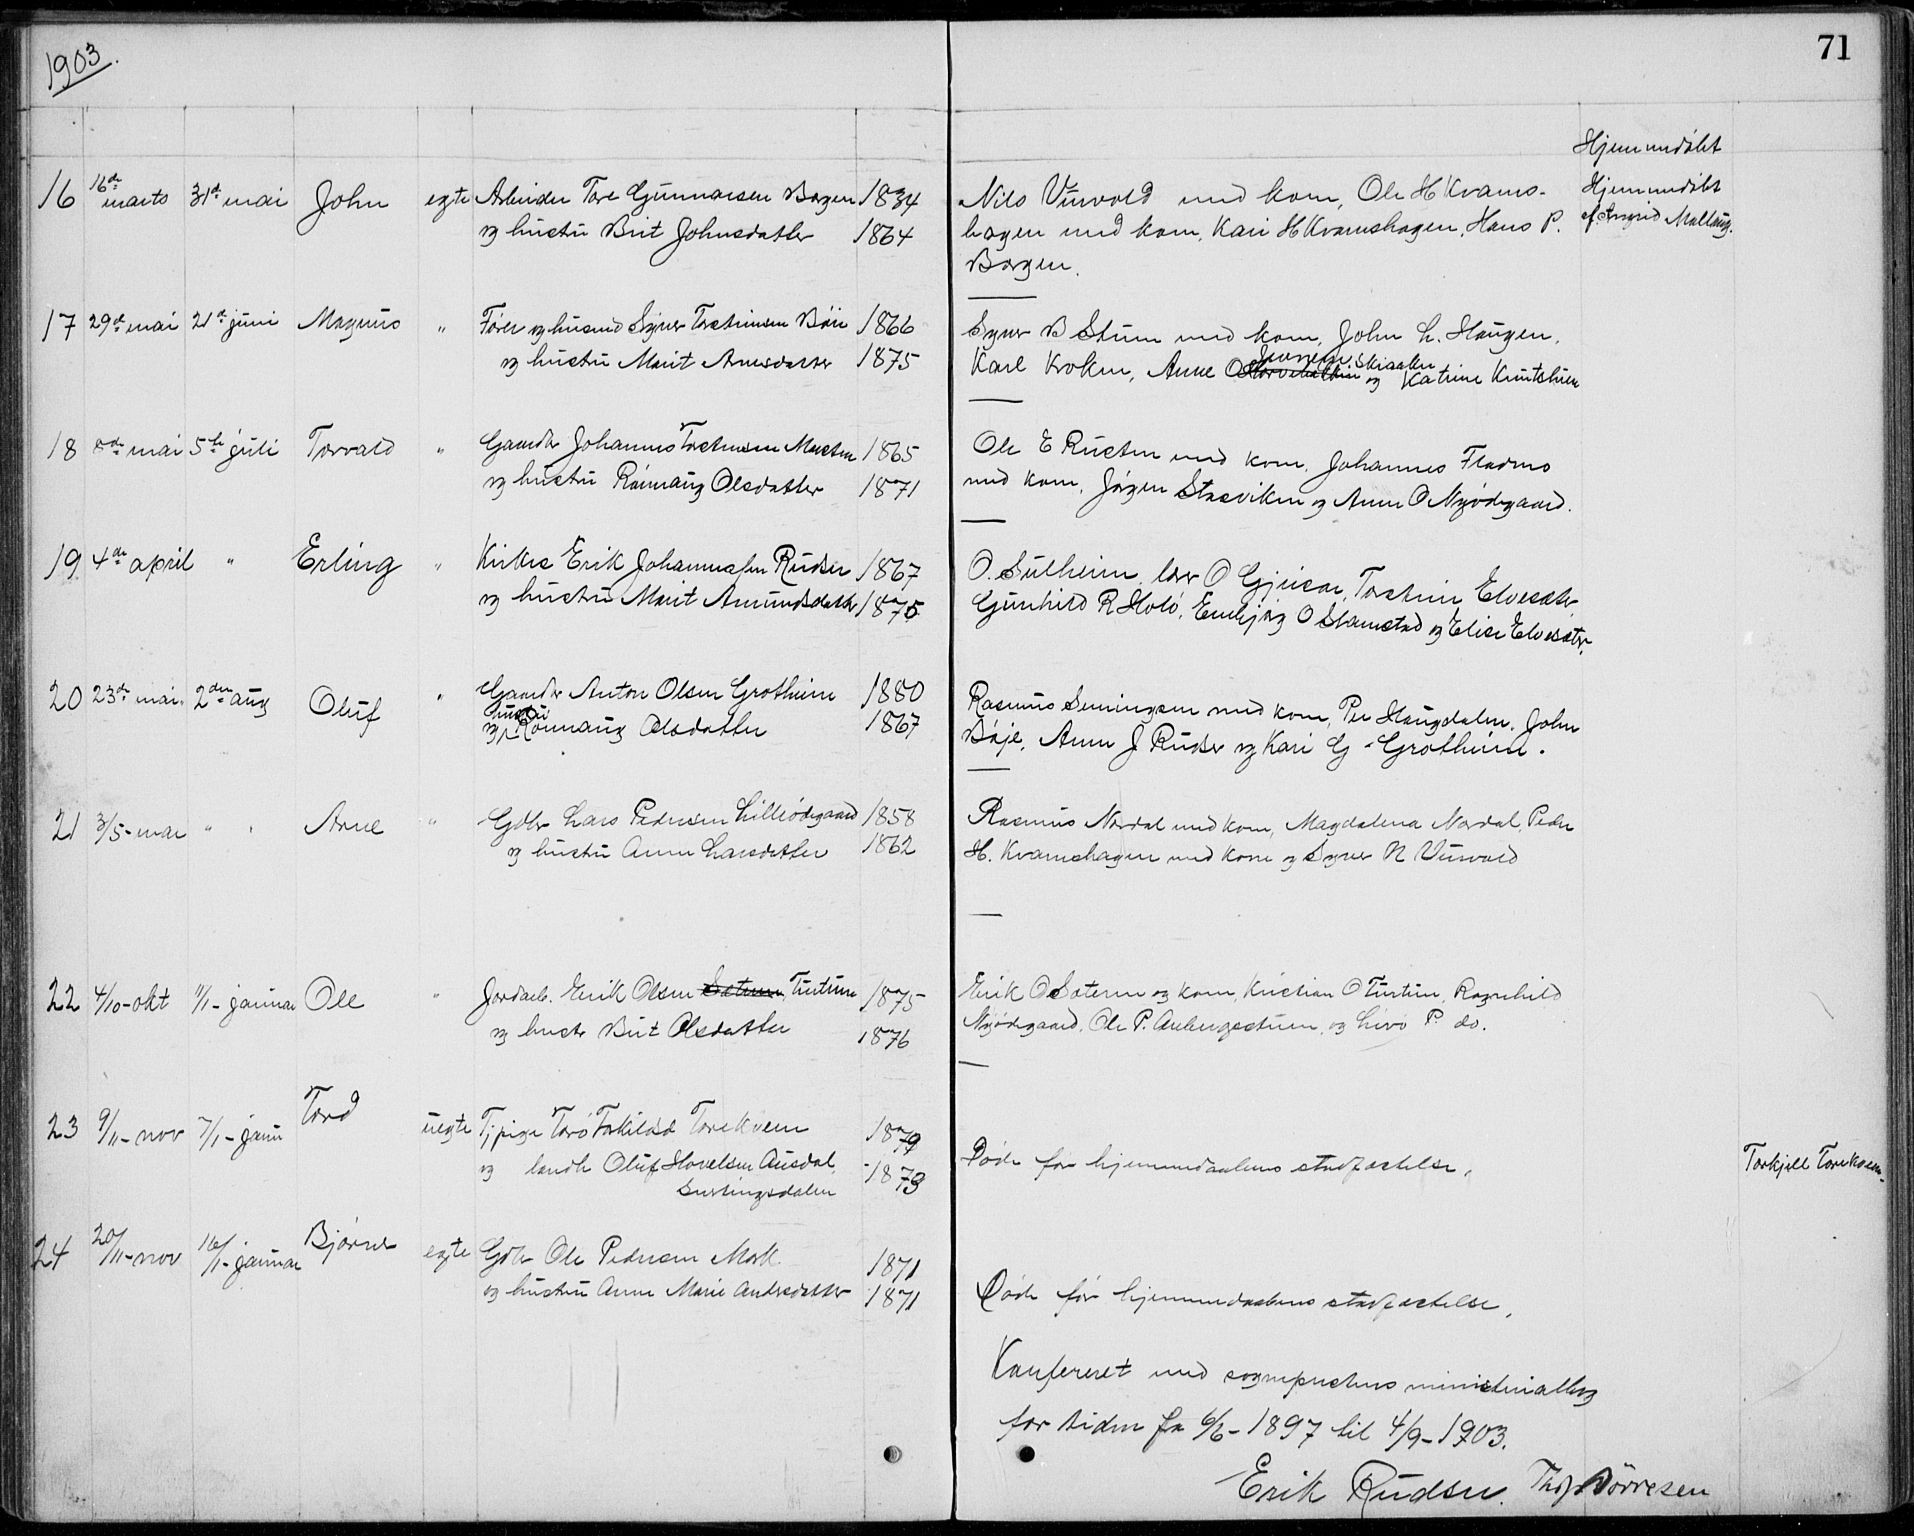 1903.
71
Hjemmedøbt
16 16de marts 31d mai John egte Arbeider Tore Gunnarsen Bergen 1834
og hustru Brit Johnsdatter 1864
Nils Uwvold med kone, Ole H Kvams-
hagen med kone, Kari H Kvamshagen, Hans P.
Bergen.
Hjemmedøbt
af Ingrid Mallaug.
17 29d mai 21d juni Magnus " og husmd Syver Torsteinsen Böie 1866
og hustru Marit Arnesdatter 1875
Syver B Stuen med kone, John L. Haugen,
Karl Kroken, Anne O Skiaaker og Katrine
18 8de mai 5te juli Torvald " Gaardbr Johannes Torsteinsen 1865
og hustru Rönnaug Olsdatter 1871
Ole E Rusten med kone, Johannes Fladmo
med kone, Jörgen Stasviken og Anne O Nyödegaard.
19 4de april " Erling " Kirkes Erik Johannessen Rudser 1867
og hustru Marit Amundsdatter 1875
O. Sulheim, lærer O Gjeisar, Torstein Elvesæter
Gunhild R Holö, Embjörg O Stamstad og Elise Elvesæter.
20 23de mai. 2den aug Oluf " Gaardbr Anton Olsen Grotheim 1880
og hustru Rönnaug Olsdatter 1867
Rasmus Semingsen med kone, Per Haugdalen, John
Böje, Anne J Rudser og Kari G Grotheim.
21 3/5-mai " " Arne " Gdbr Lars Pedersen Lilleödegaard 1858
og hustru Anne Larsdatter 1862
Rasmus Nordal med kone, Magdalena Nordal, Peder
H. Kvamshagen med kone og Syver N Uwvold
22 4/10-okt 1/1-januar Ole " Jordarb. Erik Olsen Sæteren 1875
og hustr Brit Olsdatter 1876
Erik O Sæteren og kone, Kristian O Turtun, Ragnhild
Nyödegaard, Ole P. og Livö P. do.
23 9/11-nov 7/1-janu Tord uegte Tj pige Torö Torkildsd Torekvem 1879
og landh Oluf Hovelsen Ausdal, 1873
Döde før hjemmedaabens stadfæstelse.
Torkjell Torekvem.
24 20/11-nov 16/1-januar Bjørner egte Gdbr Ole Pedersen Mork 1871
og hustru Anne Marie Andersdatter 1871
Döde før hjemmedaabens stadfæstelse.
Konfereret med sogneprestens ministerialbog
for tiden fra 6/6-1897 til 4/9-1903.
Erik Rudser. Nörresen